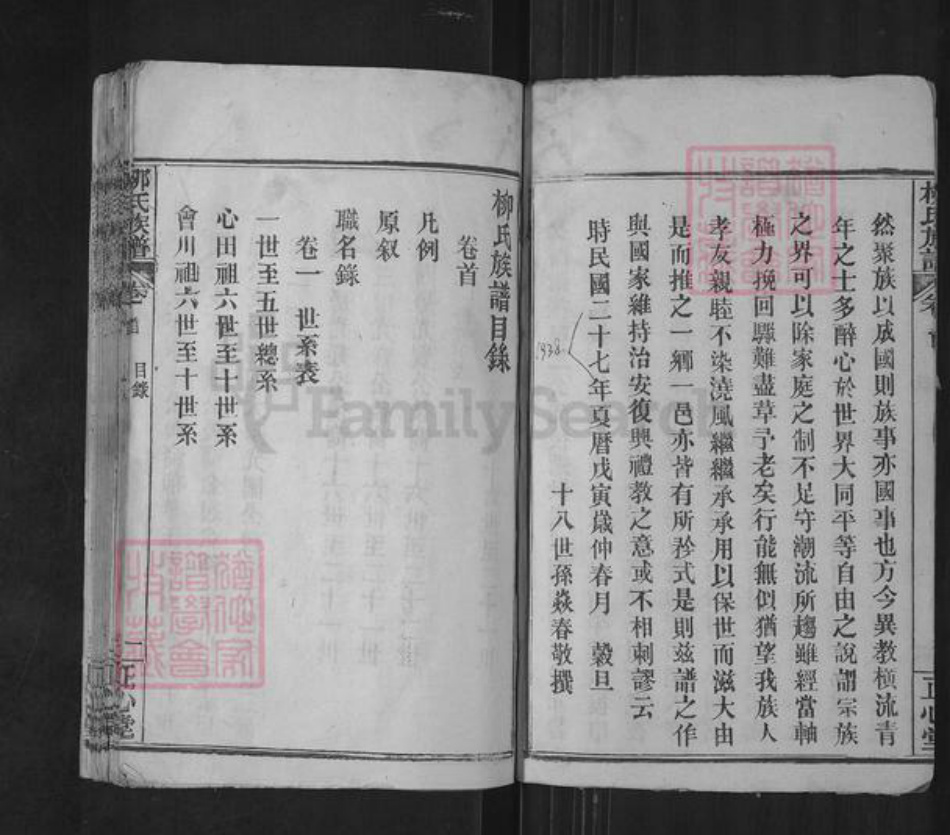 然聚族以成國則族事亦國事也方今異教橫流青
年之士多醉心於世界大同平等自由之說謂宗族
之界可以除家庭之制不足守潮流所趨雖經當軸
極力挽回驟難盡草予老矣行能無似猶望我族人
孝友親睦不染澆風繼繼承承用以保世而滋大由
是而推之一鄉一邑亦皆有所矜式是則兹譜之作
與國家維持治安復興禮教之意或不相剌謬云
時民國二十七年夏曆戊寅歲仲春月 穀旦
1938
十八世孫焱春敬撰
正心堂
柳氏族譜目錄
卷首
凡例
原叙
職名錄
卷一 世系表
一世至五世總系
心田祖六世至十世系
會川祖六世至十世系
柳氏族譜
卷首
目錄
一
正心堂
FamilySearch